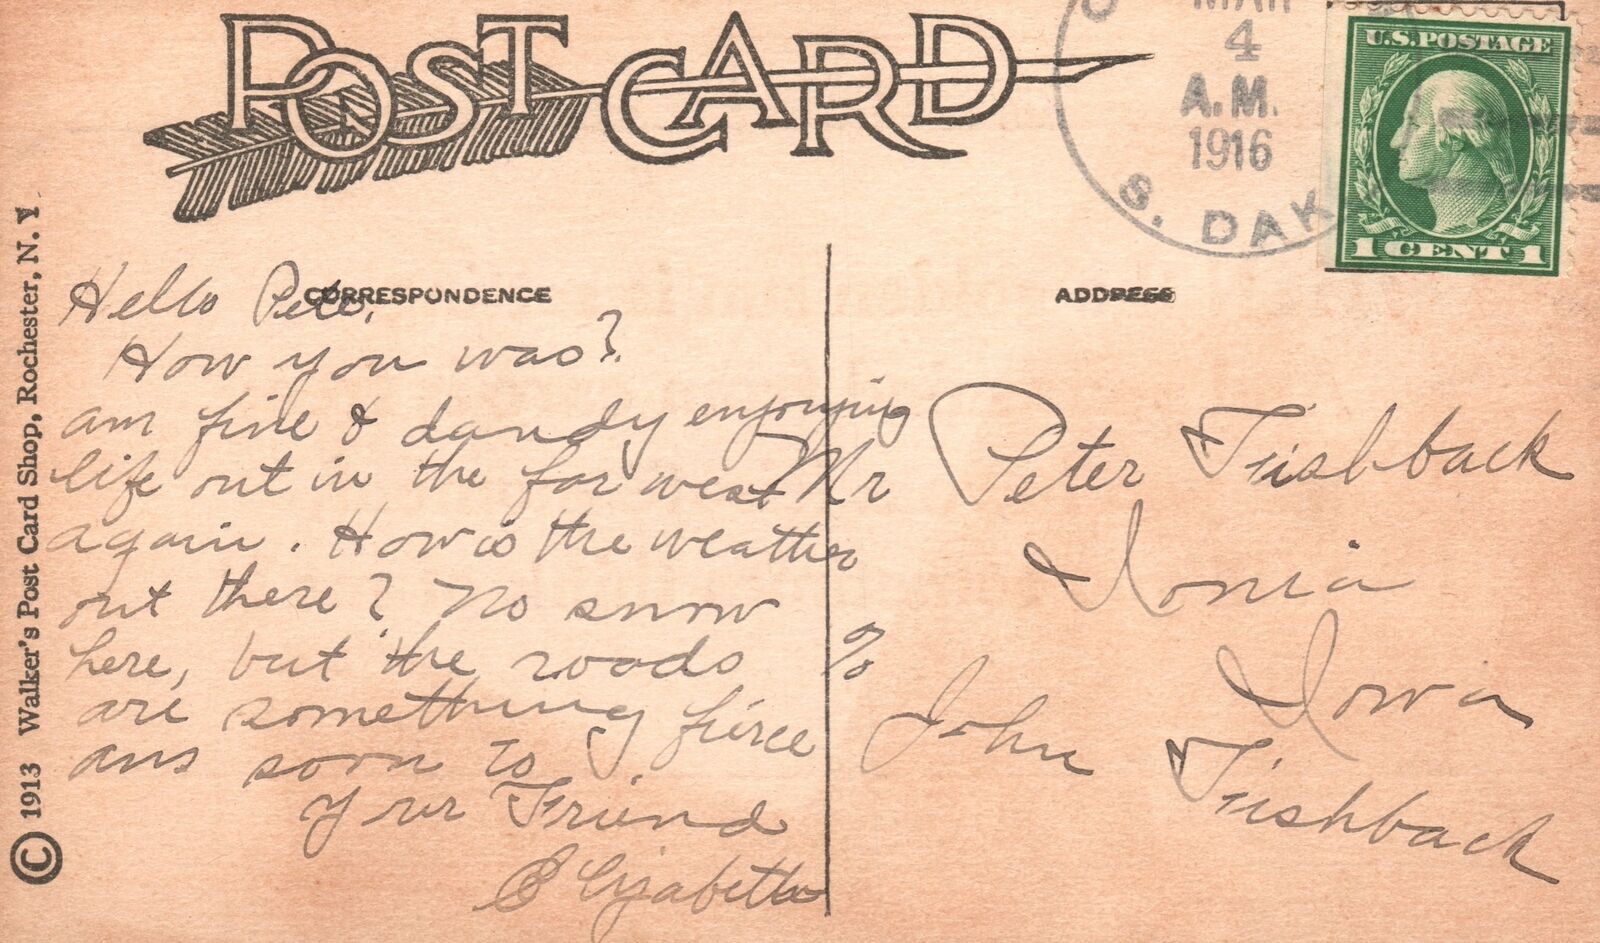 POST CARD
MAR
4
A.M.
1916
S. DAK
U.S. POSTAGE
1 CENT 1
© 1913 Walker's Post Card Shop, Rochester, N. Y
CORRESPONDENCE
ADDRESS
Hello Pete,
How you was?
am fine & dandy enjoying
life out in the far west
again. How is the weather
out there? No snow
here, but the roads
are something fierce
ans soon to
your Friend
Elizabeth
Mr Peter Fishback
Ionia
Iowa
%
John Fishback